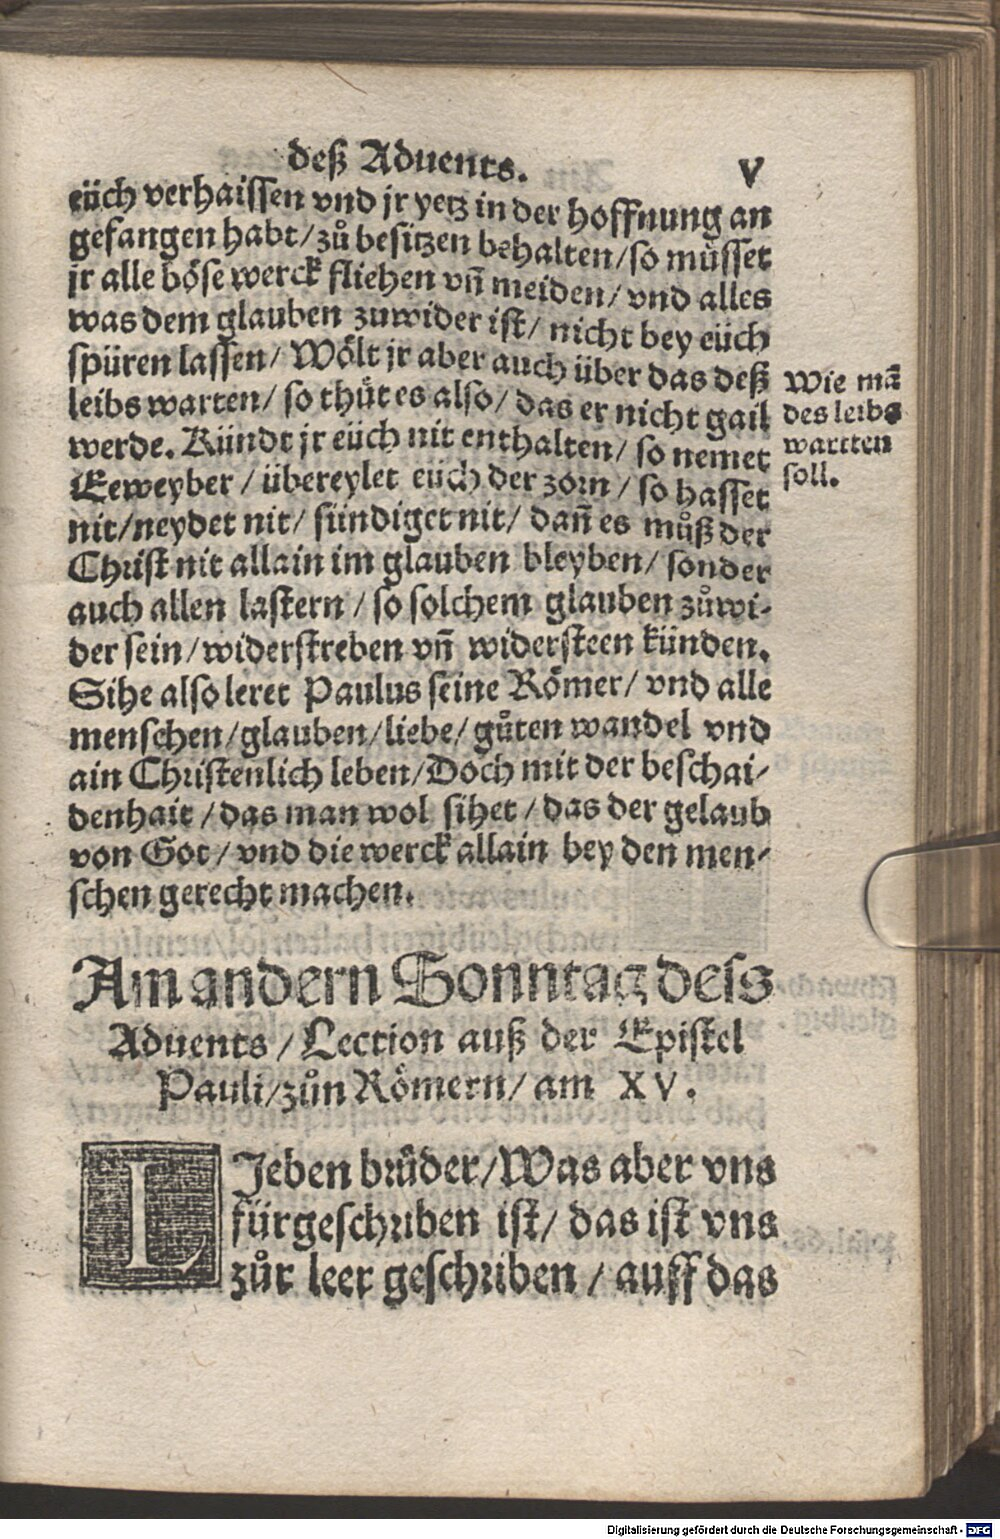 deß Aduents. V
eüch verhaissen vnd jr yetz in der hoffnung an
gefangen habt/zů besitzen behalten/so müsset
jr alle böse werck fliehen vñ meiden/vnd alles
was dem glauben zuwider ist/nicht bey eüch
spüren lassen/Wölt jr aber auch über das deß
leibs warten/so thüt es also/das er nicht gail
werde. Kündt jr eüch nit enthalten/so nemet
Eeweyber/übereylet eüch der zorn/so hasset
nit/neydet nit/sündiget nit/dañ es můß der
Christ nit allain im glauben bleyben/sonder
auch allen lastern/so solchem glauben zůwi-
der sein/widerstreben vñ widersteen künden.
Sihe also leret Paulus seine Römer/vnd alle
menschen/glauben/liebe/gůten wandel vnd
ain Christenlich leben/Doch mit der beschai/
denhait/das man wol sihet/das der gelaub
von Got/vnd die werck allain bey den men/
schen gerecht machen.
Wie mã
des leibs
wartten
soll.
Am andern Sonntag dess
Aduents/Lection auß der Epistel
Pauli/zůn Römern/am XV.
LJeben brůder/Was aber vns
fürgeschriben ist/das ist vns
zůr leer geschriben/auff das
Digitalisierung gefördert durch die Deutsche Forschungsgemeinschaft - DFG